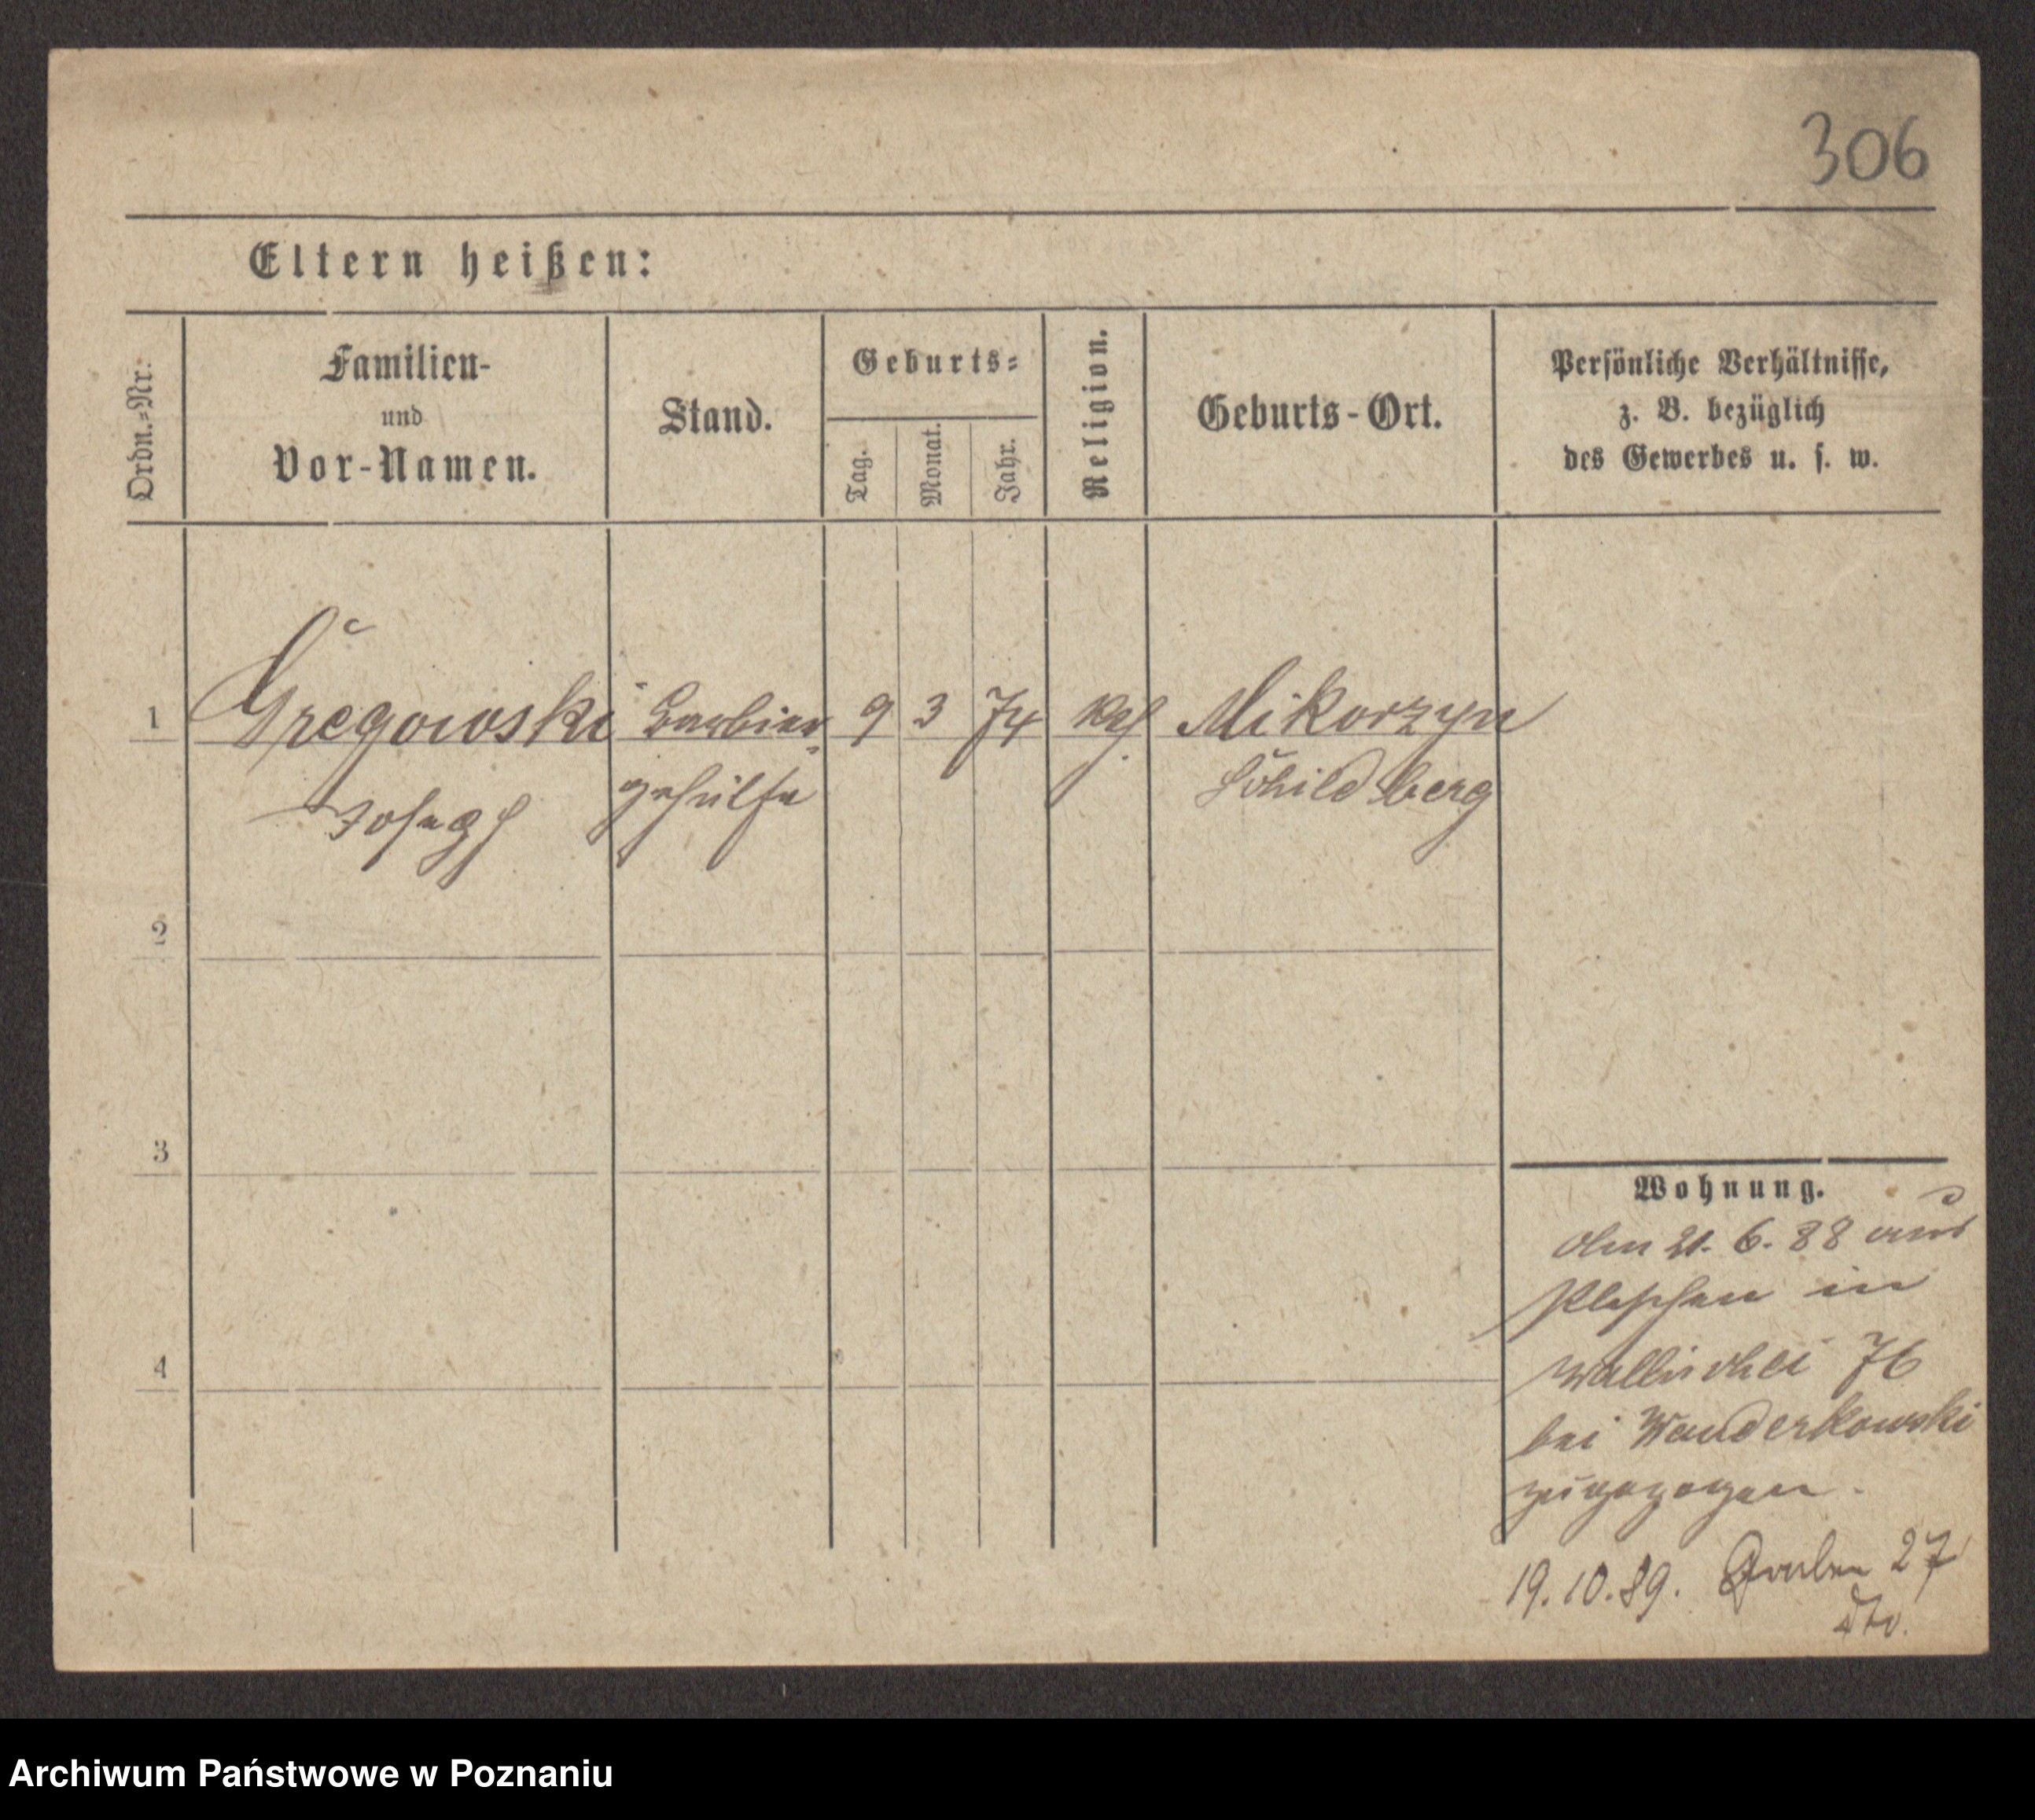 306
Eltern heißen:
Ordn.-Nr:
Familien-
und
Vor-Namen.
Stand.
Geburts-
Tag.
Monat.
Jahr.
Religion.
Geburts-Ort.
Persönliche Verhältnisse,
z. B. bezüglich
des Gewerbes u. s. w.
1 Gregowski Barbier- 9 3 74 kath Mikorzyn
Joseph gehülfe Schildberg
2
3
4
Wohnung.
Am 21. 6. 88 aus
Pleschen in
Wallischei 76
bei Wanderkowski
zugezogen.
19.10.89. Graben 27
dto.
Archiwum Państwowe w Poznaniu